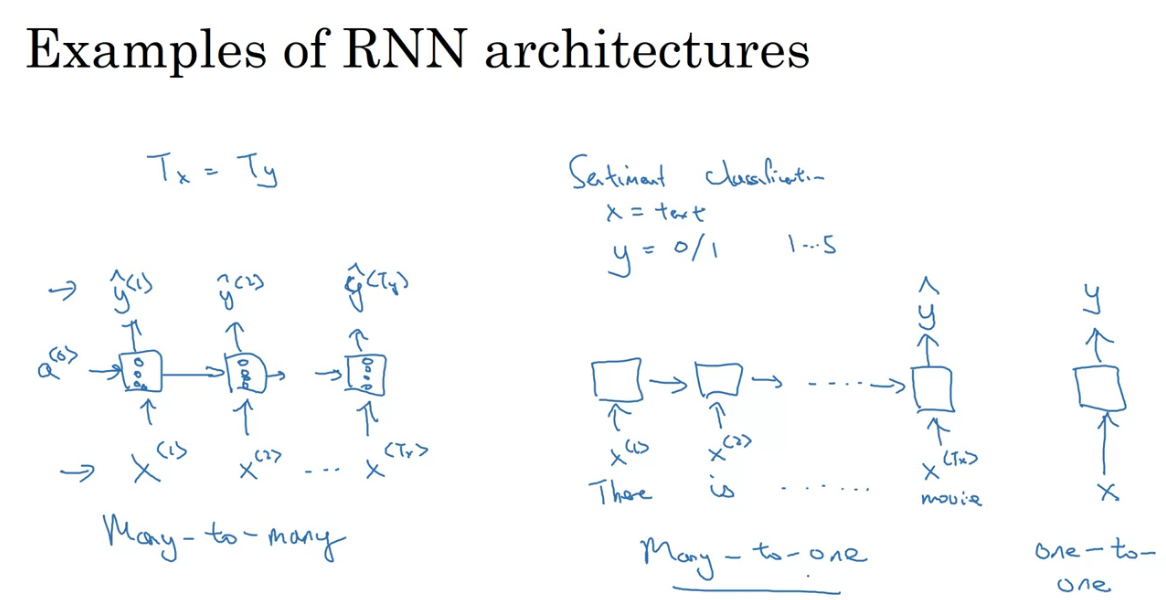 Examples of RNN architectures
Tx = Ty
ŷ<1> ŷ<2> ŷ<Ty>
a<0>
x<1> x<2> ... x<Tx>
Many-to-many
Sentiment classification
x = text
y = 0/1 1...5
ŷ
.....
x<1> x<2> x<Tx>
There is ....... movie
Many-to-one
y
x
one-to-
one